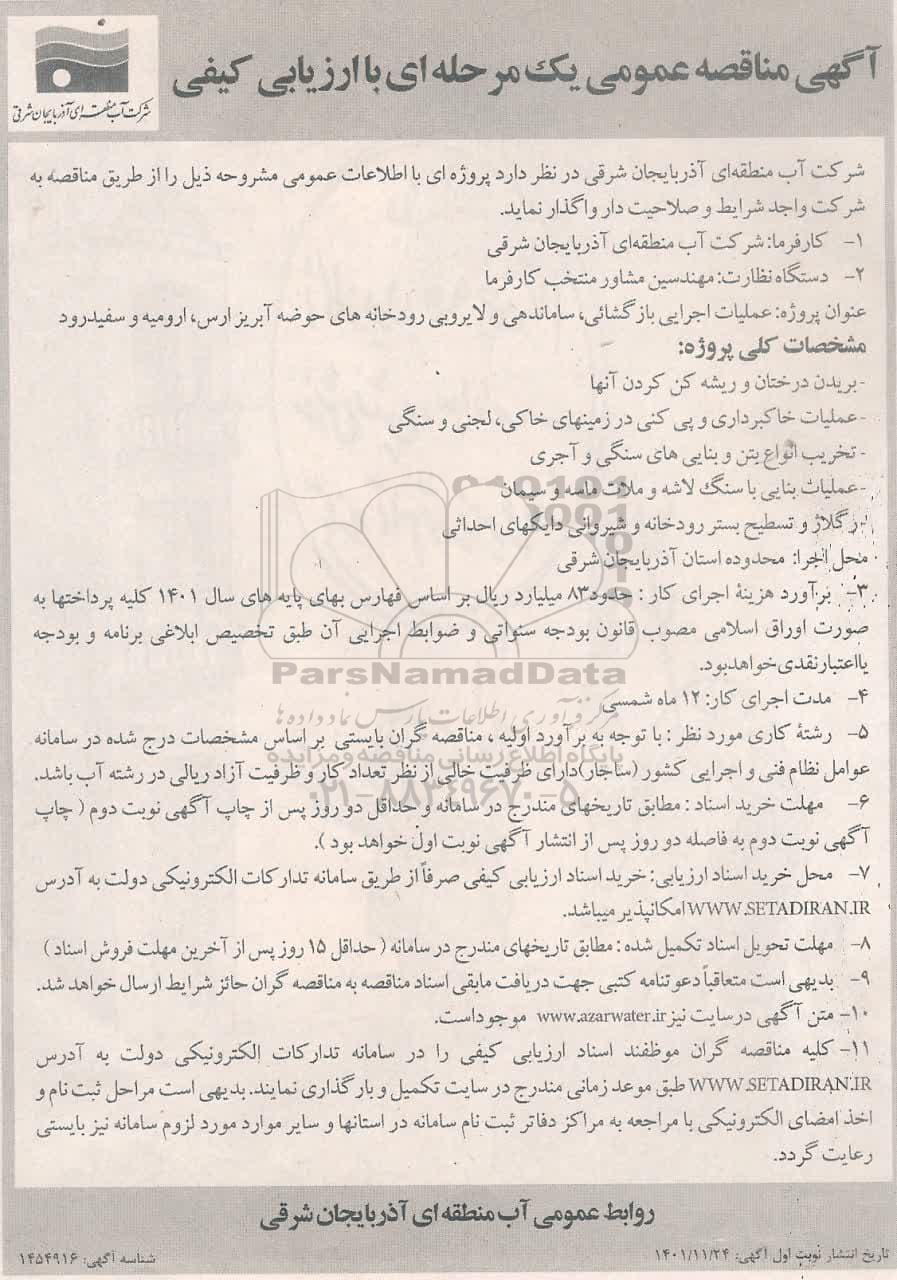 آگهی مناقصه عمومی یک مرحله ای با ارزیابی کیفی
شرکت آب منطقه ای آذربایجان شرقی
شرکت آب منطقه‌ای آذربایجان شرقی در نظر دارد پروژه ای با اطلاعات عمومی مشروحه ذیل را از طریق مناقصه به
شرکت واجد شرایط و صلاحیت دار واگذار نماید.
۱- کارفرما: شرکت آب منطقه‌ای آذربایجان شرقی
۲- دستگاه نظارت: مهندسین مشاور منتخب کارفرما
عنوان پروژه: عملیات اجرایی بازگشائی، ساماندهی و لایروبی رودخانه های حوضه آبریز ارس، ارومیه و سفیدرود
مشخصات کلی پروژه:
- بریدن درختان و ریشه کن کردن آنها
- عملیات خاکبرداری و پی کنی در زمینهای خاکی، لجنی و سنگی
- تخریب انواع بتن و بنایی های سنگی و آجری
- عملیات بنایی با سنگ لاشه و ملات ماسه و سیمان
- رگلاژ و تسطیح بستر رودخانه و شیروانی دایکهای احداثی
محل اجرا: محدوده استان آذربایجان شرقی
۳- برآورد هزینهٔ اجرای کار : حدود۸۳ میلیارد ریال بر اساس فهارس بهای پایه های سال ۱۴۰۱ کلیه پرداختها به
صورت اوراق اسلامی مصوب قانون بودجه سنواتی و ضوابط اجرایی آن طبق تخصیص ابلاغی برنامه و بودجه
یااعتبارنقدی‌خواهدبود.
ParsNamadData
۴- مدت اجرای کار: ۱۲ ماه شمسی
مرکز فرآوری اطلاعات پارس نماد داده ها
۵- رشتهٔ کاری مورد نظر : با توجه به برآورد اولیه ، مناقصه گران بایستی بر اساس مشخصات درج شده در سامانه
پایگاه اطلاع رسانی مناقصه و مزایده
عوامل نظام فنی و اجرایی کشور (ساجار)دارای ظرفیت خالی از نظر تعداد کار و ظرفیت آزاد ریالی در رشته آب باشد.
۰۲۱-۸۸۳۴۹۶۷۰-۵
۶- مهلت خرید اسناد : مطابق تاریخهای مندرج در سامانه و حداقل دو روز پس از چاپ آگهی نوبت دوم ( چاپ
آگهی نوبت دوم به فاصله دو روز پس از انتشار آگهی نوبت اول خواهد بود ).
۷- محل خرید اسناد ارزیابی: خرید اسناد ارزیابی کیفی صرفاً از طریق سامانه تدارکات الکترونیکی دولت به آدرس
WWW.SETADIRAN.IR امکانپذیر میباشد.
۸- مهلت تحویل اسناد تکمیل شده : مطابق تاریخهای مندرج در سامانه ( حداقل ۱۵ روز پس از آخرین مهلت فروش اسناد )
۹- بدیهی است متعاقباً دعوتنامه کتبی جهت دریافت مابقی اسناد مناقصه به مناقصه گران حائز شرایط ارسال خواهد شد.
۱۰- متن آگهی درسایت نیز www.azarwater.ir موجوداست.
۱۱- کلیه مناقصه گران موظفند اسناد ارزیابی کیفی را در سامانه تدارکات الکترونیکی دولت به آدرس
WWW.SETADIRAN.IR طبق موعد زمانی مندرج در سایت تکمیل و بارگذاری نمایند. بدیهی است مراحل ثبت نام و
اخذ امضای الکترونیکی با مراجعه به مراکز دفاتر ثبت نام سامانه در استانها و سایر موارد مورد لزوم سامانه نیز بایستی
رعایت گردد.
روابط عمومی آب منطقه ای آذربایجان شرقی
تاریخ انتشار نوبت اول آگهی: ۱۴۰۱/۱۱/۲۴
شناسه آگهی: ۱۴۵۴۹۱۶